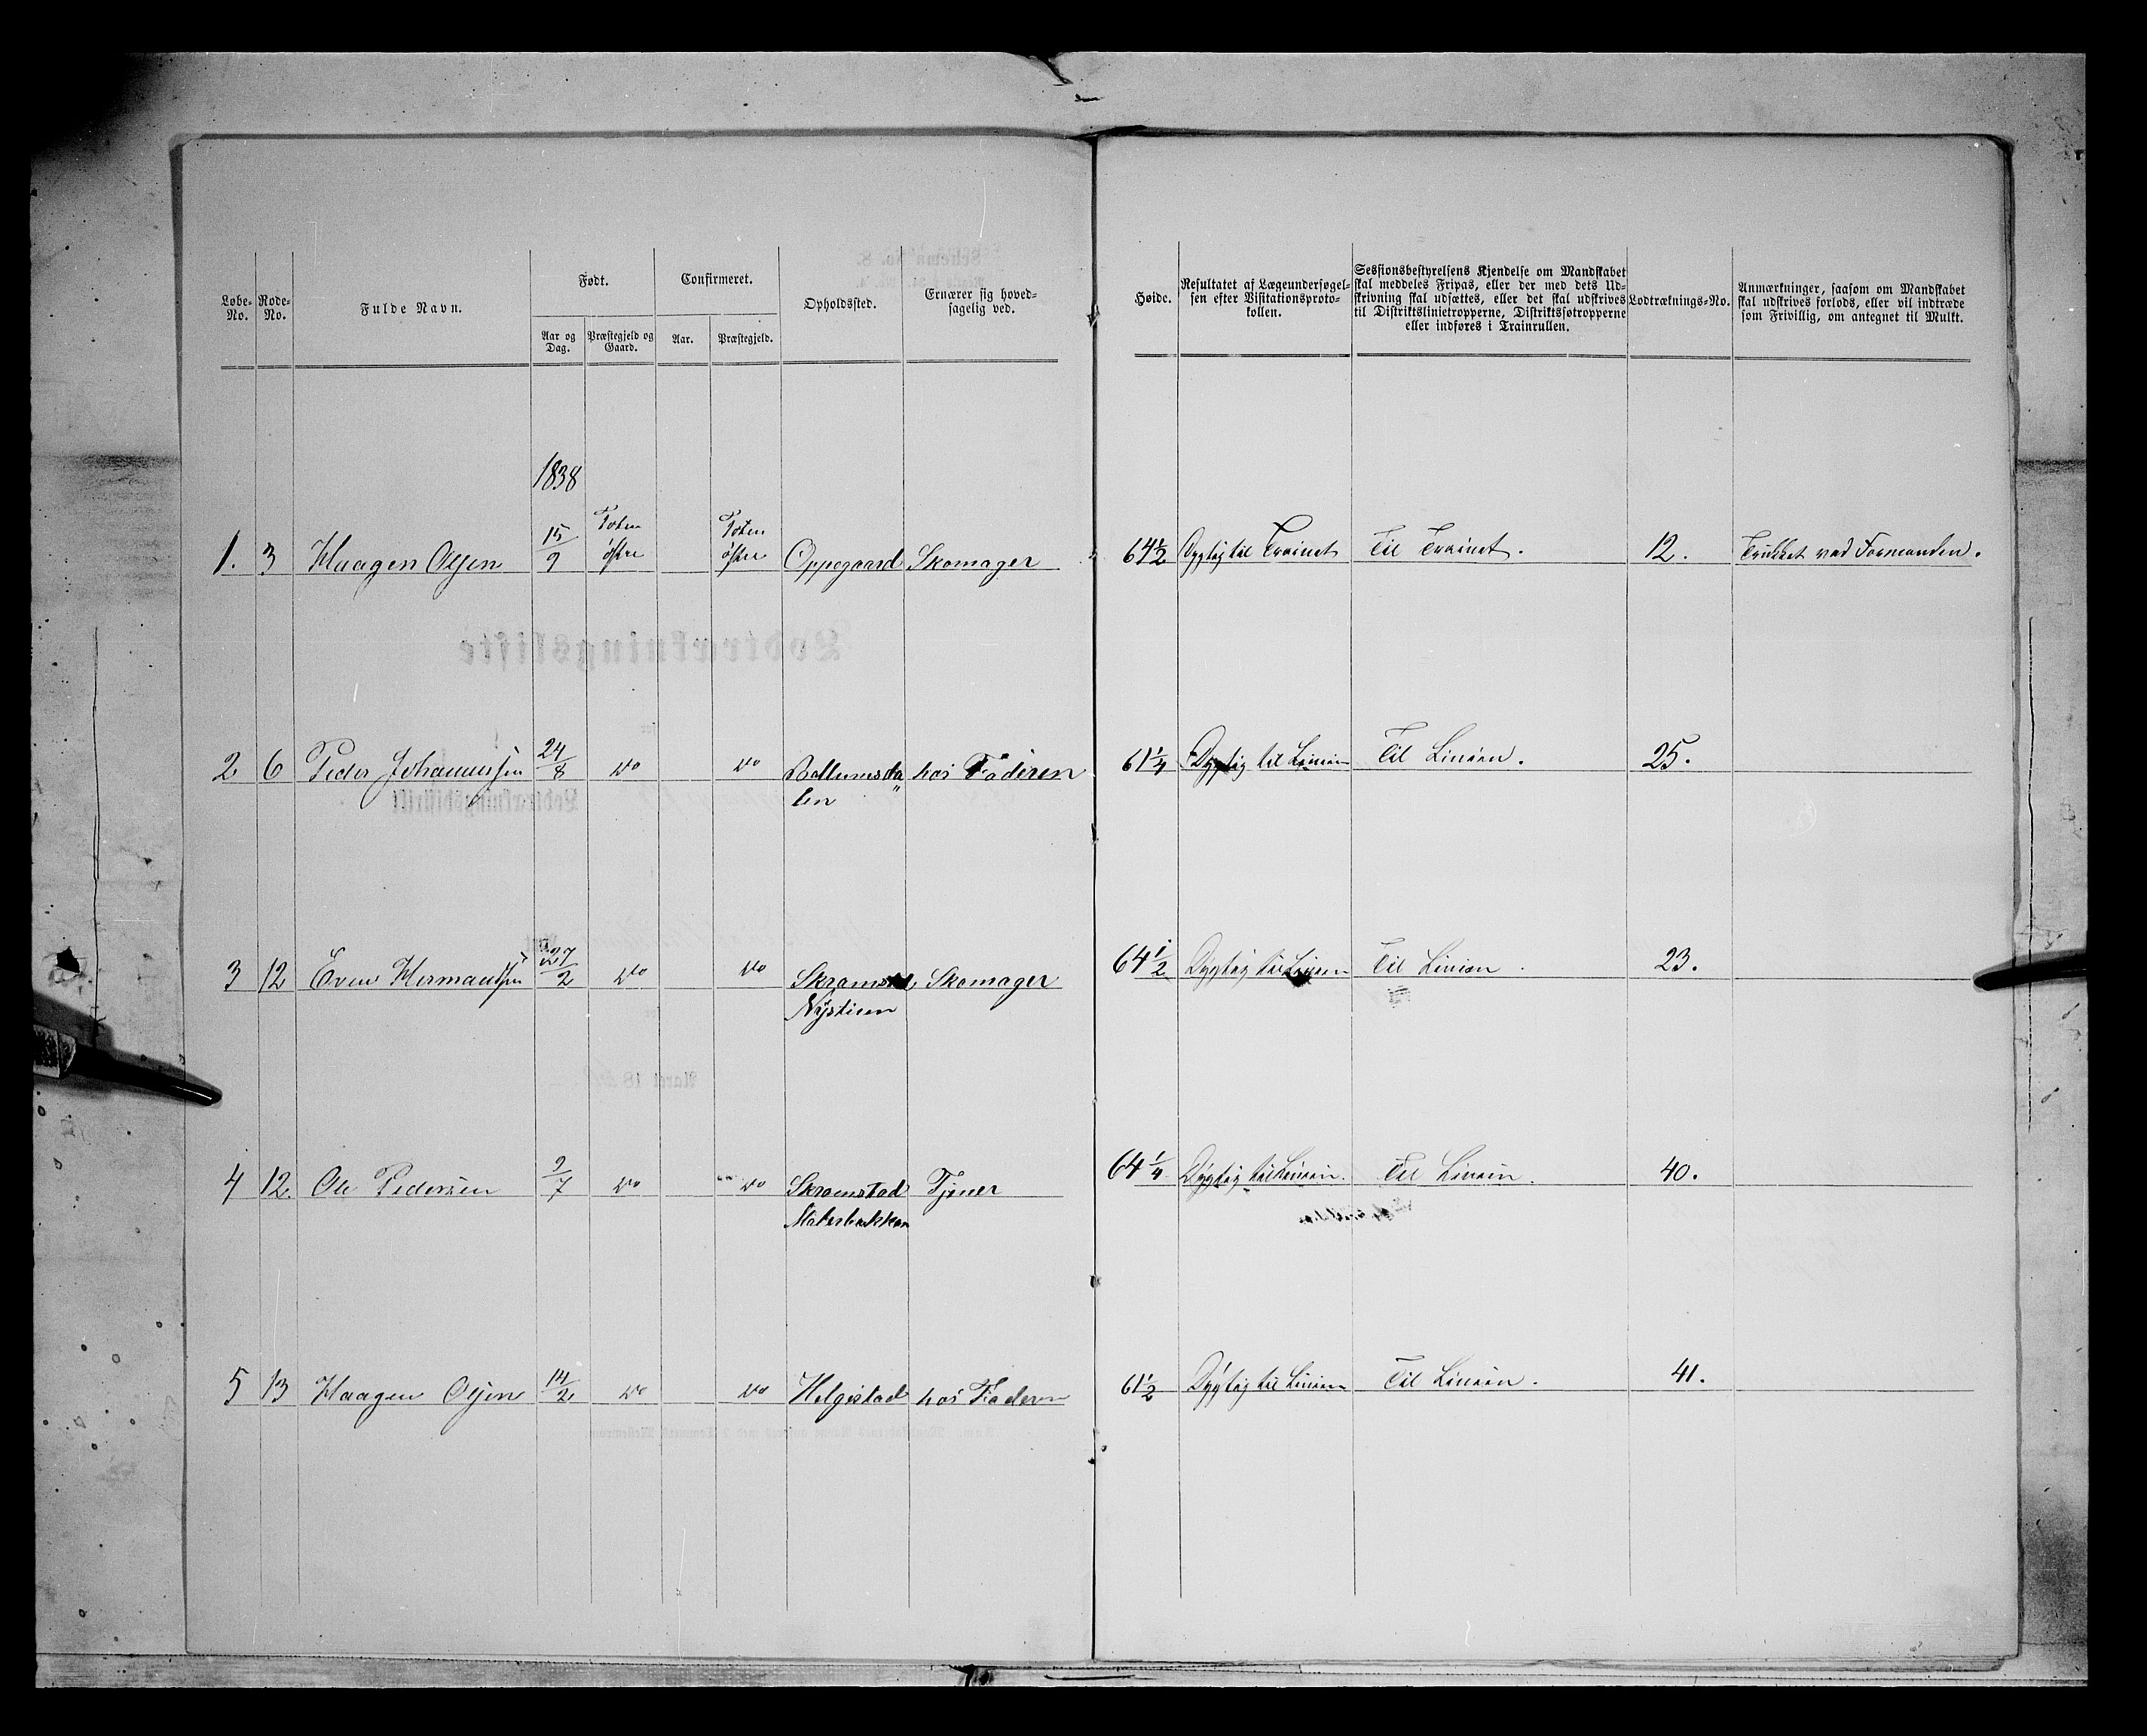 Løbe-No. Rode-No. Fulde Navn. Født. Confirmeret. Opholdssted. Ernærer sig hoved-sagelig ved.
Aar og Dag. Præstegjeld og Gaard. Aar. Præstegjeld.
Høide. Resultatet af Lægeundersøgel-sen efter Visitationsproto-kollen. Sessionsbestyrelsens Kjendelse om Mandskabet skal meddeles Fripas, eller der med dets Ud-skrivning skal udsættes, eller det skal udskrives til Distriktslinietropperne, Distriktssøtropperne eller indføres i Trainrullen. Lodtræknings-No. Anmærkninger, saasom om Mandskabet skal udskrives forlods, eller vil indtræde som Frivillig, om antegnet til Mulkt.
1838
1. 3 Haagen Olsen 15/9 Toten østre Toten østre Oppegaard Skomager 64½ Dygtig til Trainet Til Trainet. 12. Trukket ved Formanden.
2 6 Peder Johannessen 24/8 do do hos Faderen 61¼ Dygtig til Linien Til Linien. 25.
3 12 Even Hermandsen 27/2 do do Skramstad Skomager 64½ Dygtig til Linien Til Linien. 23.
Nystuen
4 12. Ole Pedersen 9/7 do do Skramstad Tjener 64¼ Dygtig til Linien. Til Linien. 40.
5 13 Haagen Olsen 14/2 do do Helgestad hos Faderen 61½ Dygtig til Linien Til Linien. 41.